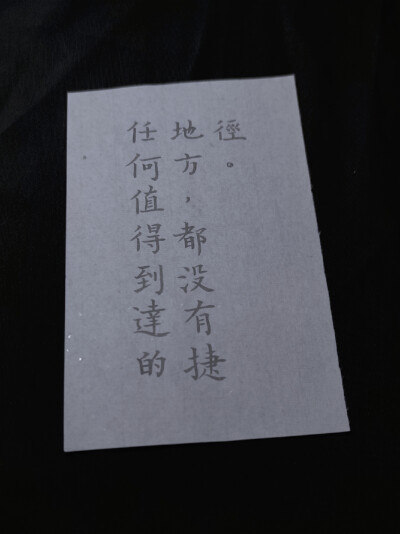 任何值得到達的
地方，都没有捷
徑。